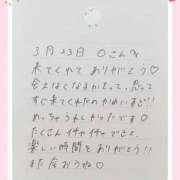 3月23日 〇さんへ
来てくれて ありがとう♡
会えなくなるかもって、思って
すぐ来てくれたのかわいすぎ!!
めっちゃうれしかったです♡
たくさんイチャイチャできて、
楽しい時間をありがとう!!
また会おうね♡